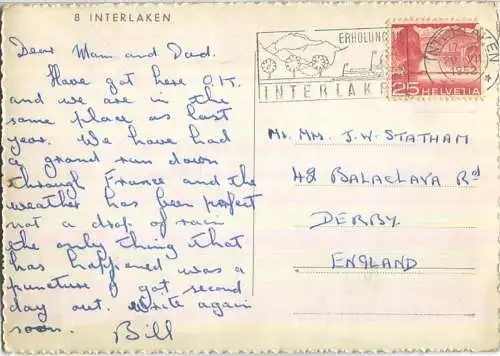 8 INTERLAKEN
Dear Mam and Dad.
Have got here O.K.
and we are in the
same place as last
year. We have had
a grand run down
through France and the
weather has been perfect
not a drop of rain
the only thing that
has happened was a
puncture I got second
day out. Write again
soon.
Bill
ERHOLUNG
INTERLAKEN
INTERLAKEN
25 HELVETIA
Mr. Mrs. J. W. STATHAM
42 BALACLAVA Rd
DERBY
ENGLAND